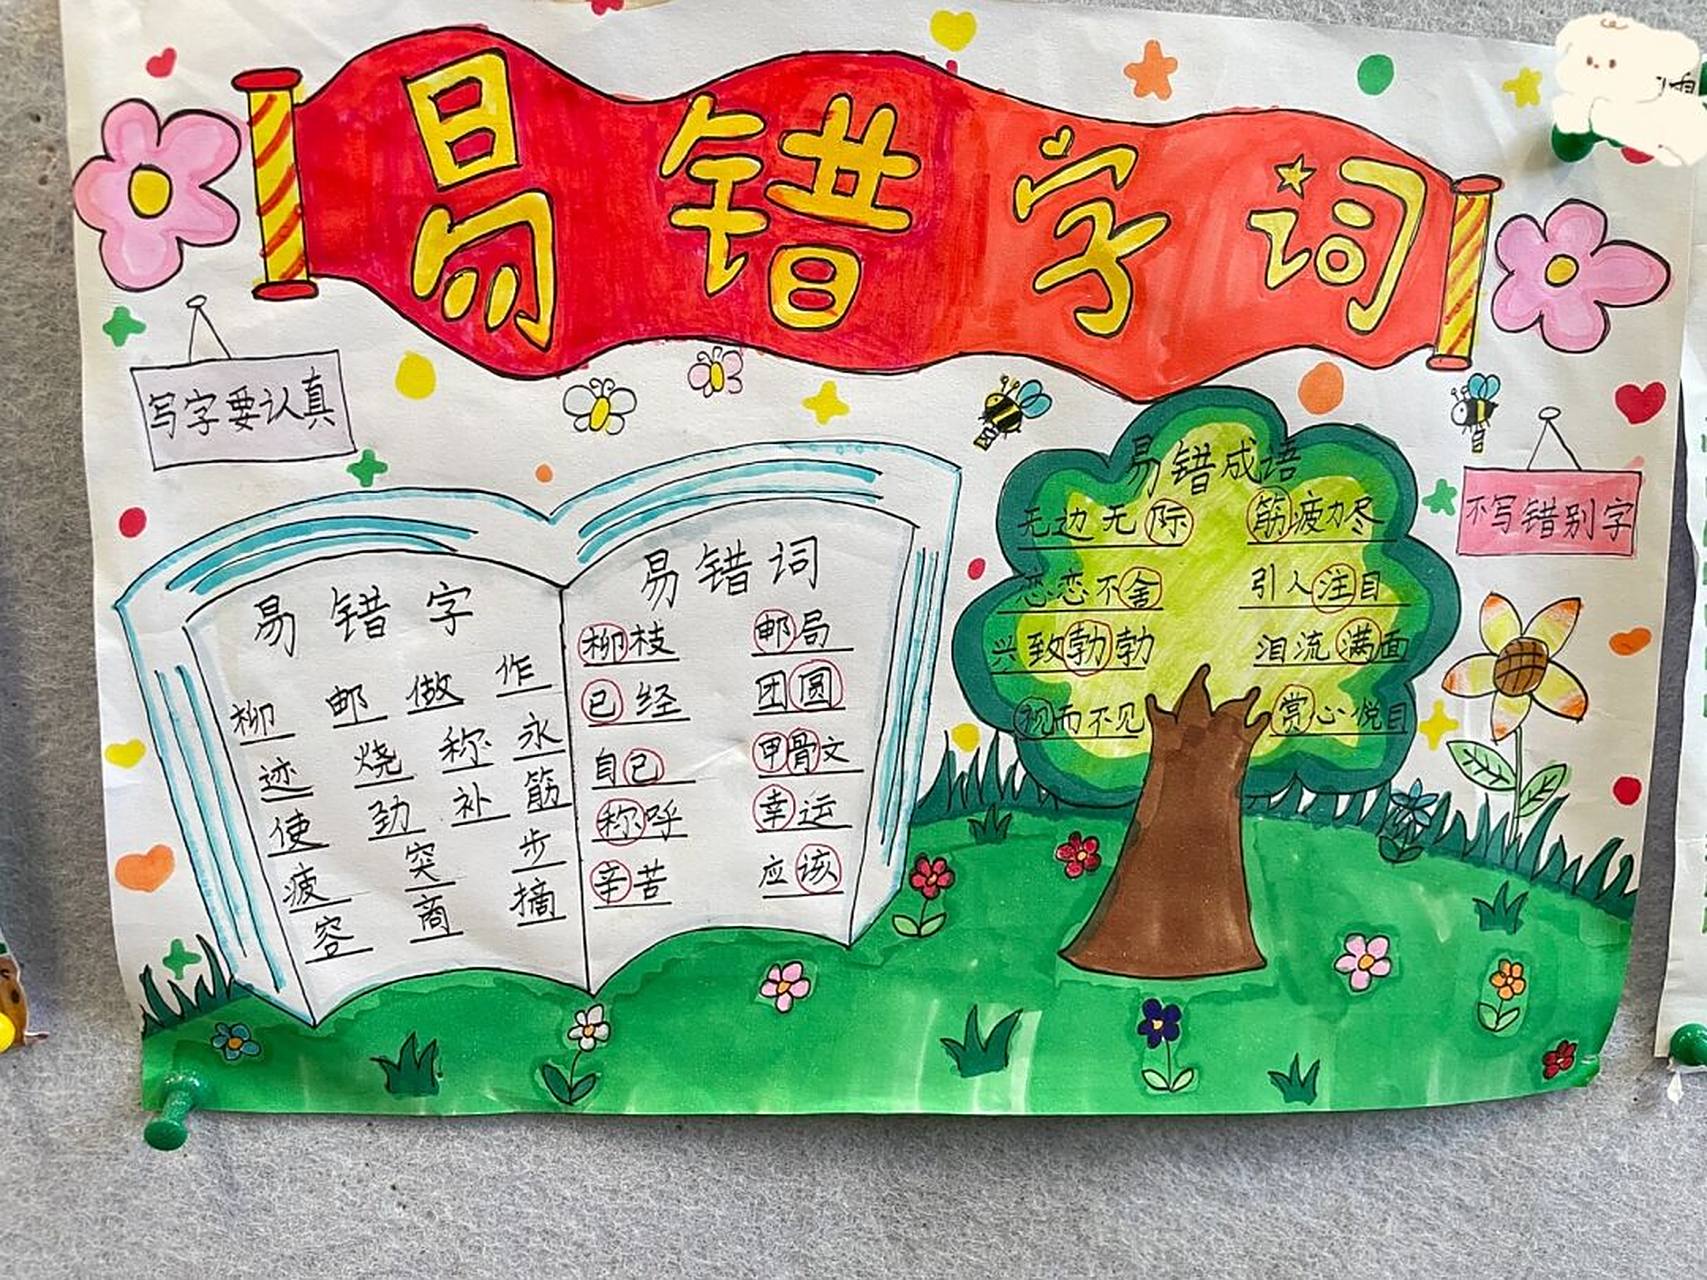 易错字词
写字要认真
不写错别字
易错字
柳 邮 做 作
迹 烧 称 永
使 劲 补 筋
疲 突 步
容 商 摘
易错词
柳枝 邮局
已经 团圆
自己 甲骨文
称呼 幸运
辛苦 应该
易错成语
无边无际 筋疲力尽
恋恋不舍 引人注目
兴致勃勃 泪流满面
视而不见 赏心悦目